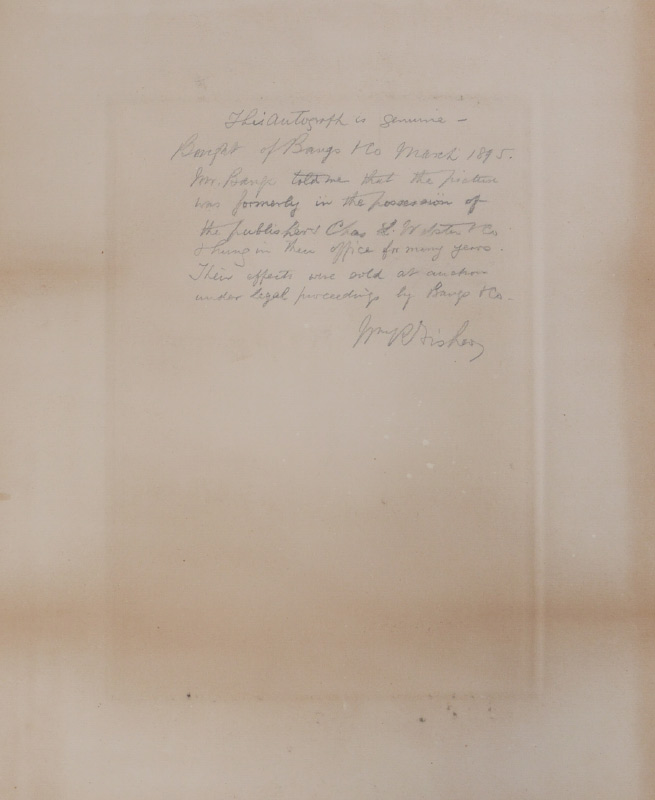 This Autograph is genuine -
Bought of Bangs & Co March 1895.
Mr. Bangs told me that the picture
was formerly in the possession of
the publishers Chas L. Webster & Co
& hung in their office for many years.
Their effects were sold at auction
under legal proceedings by Bangs & Co.
Wm R Fisher